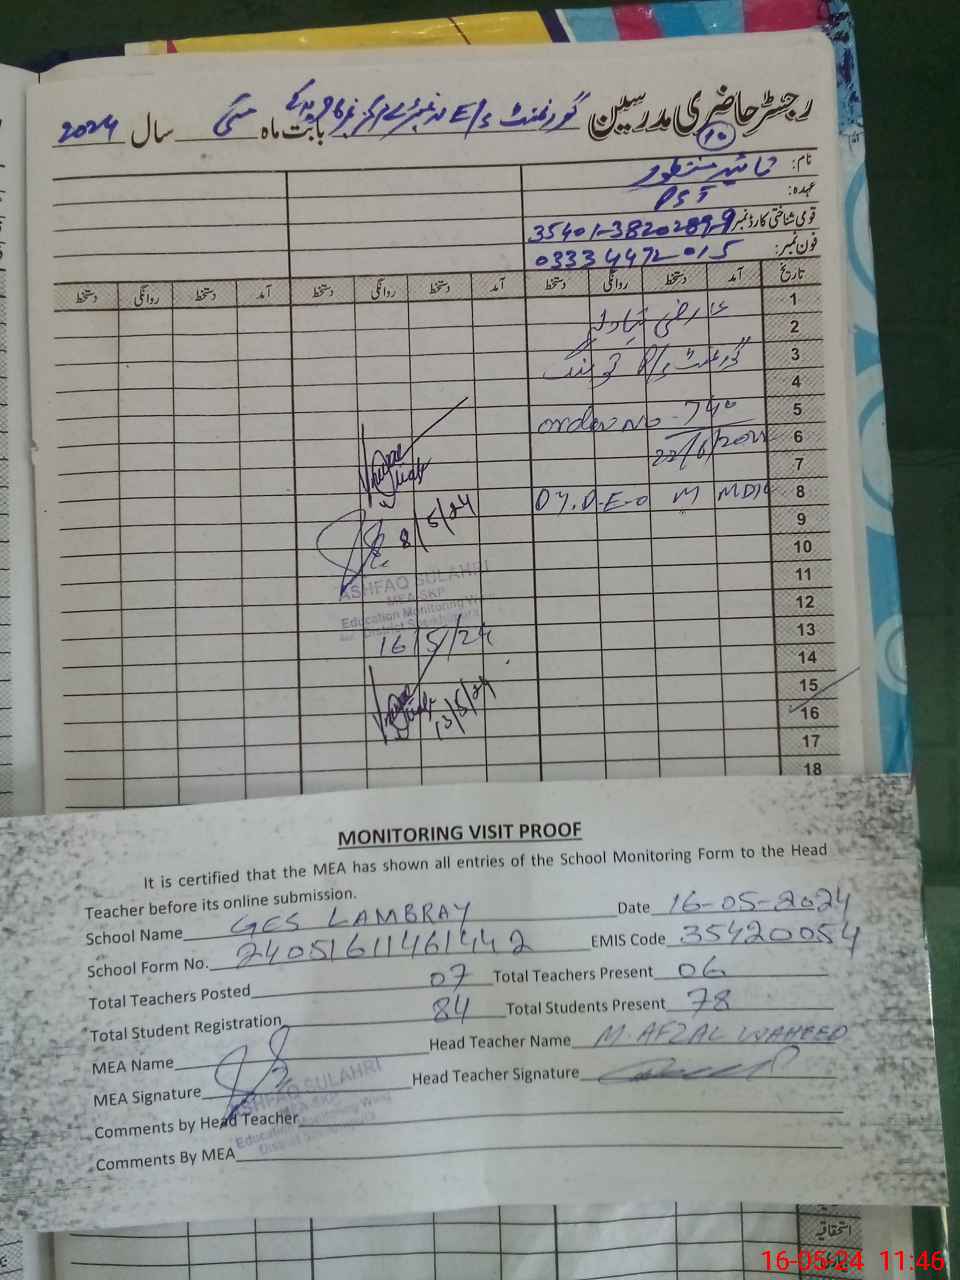 رجسٹر حاضری مدرسین گورنمنٹ E/S بابت ماہ مئی سال 2024
10
نام:
عہدہ: PST
قومی شناختی کارڈ نمبر 35401-3820289-9
فون نمبر: 03334472015
تاریخ آمد دستخط روانگی دستخط آمد دستخط روانگی دستخط آمد دستخط روانگی دستخط
1
عارضی تبادلہ
2
3
گورنمنٹ P/S
4
5
order No - 740
6
22/6/202
7
8
Dy. D-E-O M MDK
8/5/24
9
10
11
ASHFAQ SULAHRI
MEA-SKP
12
Education Monitoring Wing
District Sheikhupura
13
16/5/24
14
15
13/5/24
16
17
18
MONITORING VISIT PROOF
It is certified that the MEA has shown all entries of the School Monitoring Form to the Head
Teacher before its online submission.
School Name GES LAMBRAY Date 16-05-2024
School Form No. 24051611461442 EMIS Code 35420054
Total Teachers Posted 07 Total Teachers Present 06
Total Student Registration 84 Total Students Present 78
MEA Name Head Teacher Name M. AFZAL WAHEED
MEA Signature Head Teacher Signature
ASHFAQ SULAHRI
Comments by Head Teacher
Education Monitoring Wing
Comments By MEA
16-05-24 11:46